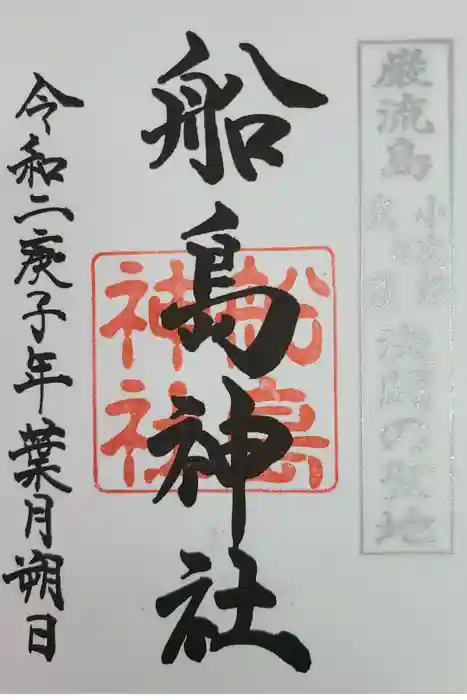 巌流島
小次郎
決闘の聖地
船島神社
船島
神社
令和二庚子年葉月朔日